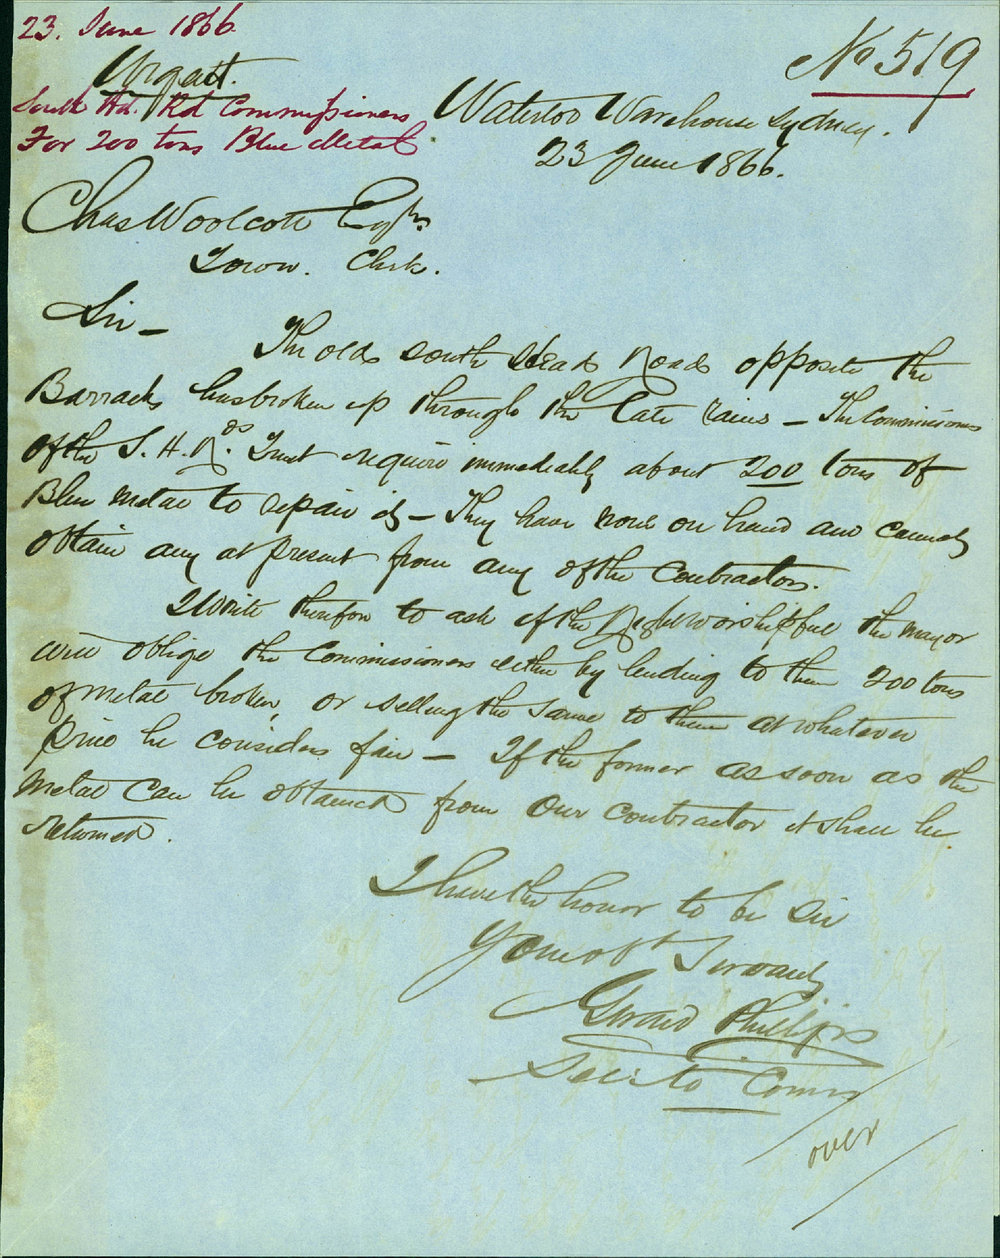 23. June 1866
No 519
Urgent.
South Hd. Rd Commissioners
For 200 tons Blue Metal
Waterloo Warehouse Sydney.
23 June 1866.
Chas Woolcott Esqr.
Town. Clerk.
Sir—
The old South Head Road opposite the
Barracks has broken up through the late rains — The Commissioners
of the S. H. Rds. Trust require immediately about 200 tons of
Blue metal to repair it — They have none on hand and cannot
obtain any at present from any of the Contractors.
I write therefore to ask if the Right Worshipful the Mayor
will oblige the Commissioners either by lending to them 200 tons
of metal broken, or selling the same to them at whatever
price he considers fair — If the former as soon as the
metal can be obtained from our Contractor it shall be
returned.
I have the honor to be Sir
Your obt Servant
Gerard Phillips
Sec. to Comrs
over